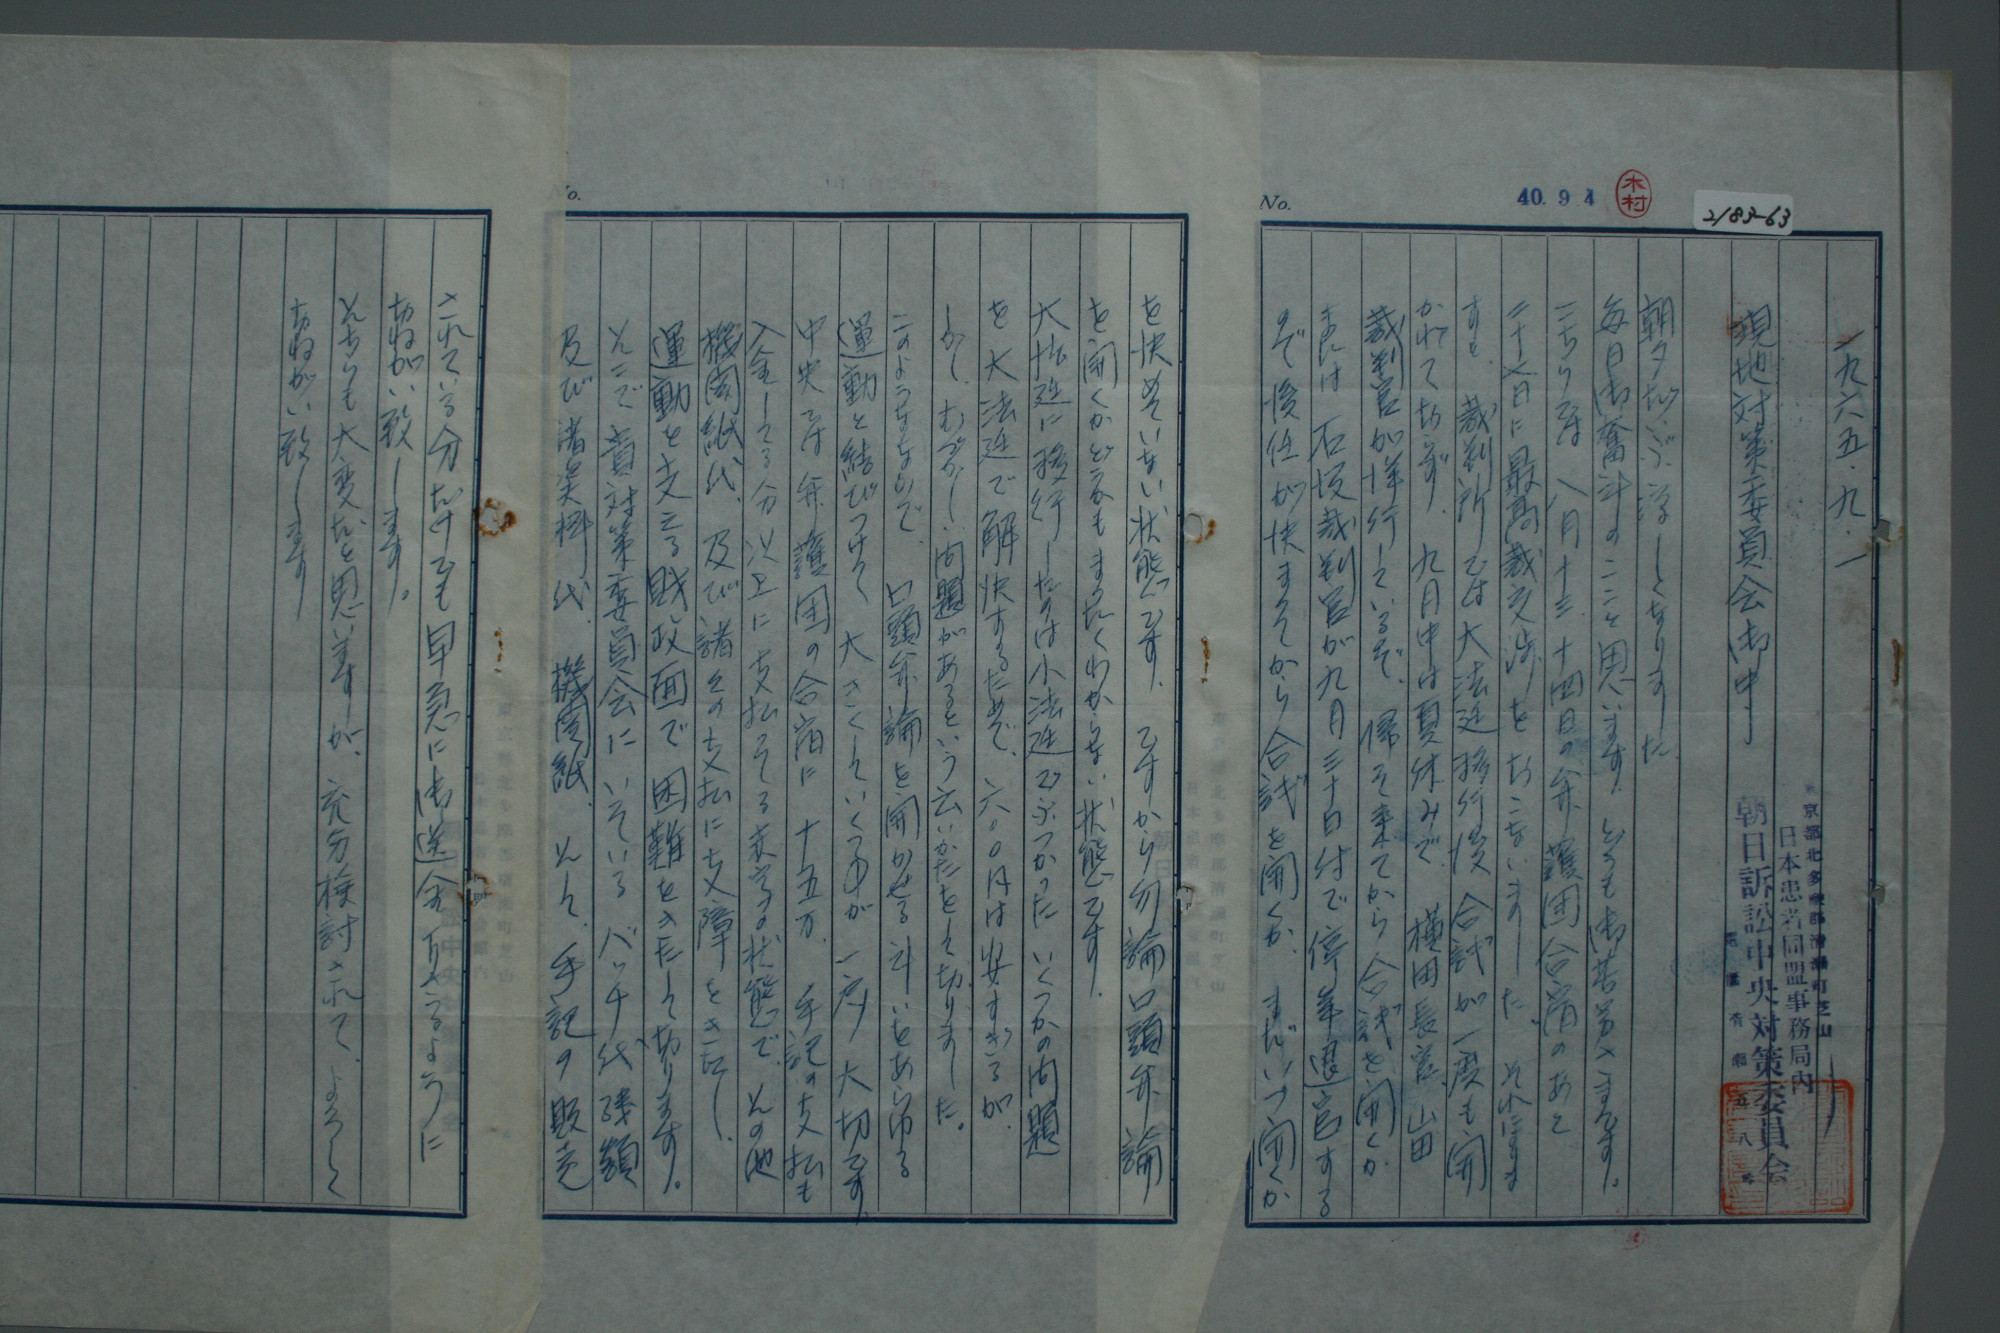 2183-63
40. 9. 4
木村
No.
一九六五.九.一
東京都北多摩郡清瀬町芝山
日本患者同盟事務局内
朝日訴訟中央対策委員会
現地対策委員会御中
朝夕だいぶ涼しくなりました
毎日御奮斗のことと思います。どうも御苦労さまです。
こちらでは八月十三、十四日の弁護団合宿のあと
二十七日に最高裁交渉をおこないました。それによりま
すと、裁判所では大法廷移行後合議が一度も開
かれておらず、九月中は夏休みで、横田長官、山田
裁判官が洋行しているので、帰って来てから合議を開くか
または石坂裁判官が九月三十日付で停年退官する
ので後任が決まってから合議を開くか、まだいつ開くか
No.
を決めていない状態です。ですから勿論口頭弁論
を開くかどうかもまったくわからない状態です。
大法廷に移行したのは小法廷でぶつかったいくつかの問題
を大法廷で解決するためで、六〇〇円は安すぎるが
しかし、むずかしい問題があるという云いかたをしておりました。
このようななかで、口頭弁論を開かせる斗いをあらゆる
運動と結びつけて大きくしていく中が一序大切です。
中央では弁護団の合宿に十五万、手記の支払も
入金してる分以上に支払ってる赤字の状態で、その他
機関紙代、及び諸々の支払に支障をきたし、
運動を支える財政面で困難をきたしております。
そこで貴対策委員会にいっているバッチ代残額
及び諸資料代、機関紙、そして、手記の販売
されている分だけでも早急に御送金下さるように
おねがい致します。
そちらも大変だと思いますが、充分検討されて、よろしく
おねがい致します